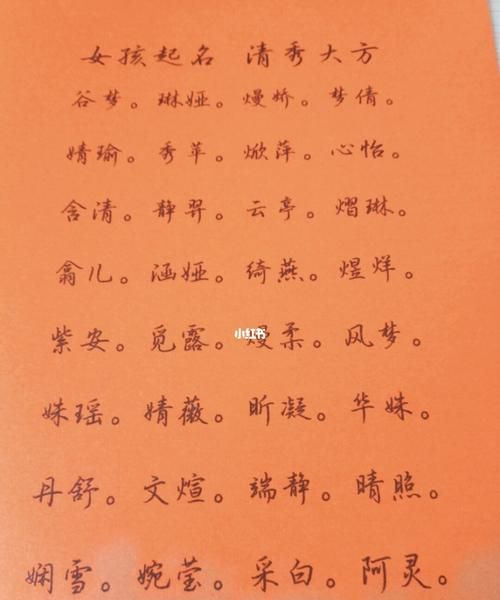 女孩起名 清秀大方
谷梦。琳娅。熳娇。梦倩。
婧瑜。秀苹。焮萍。心怡。
含清。静羿。云亭。熠琳。
翕儿。涵娅。绮燕。煜烊。
紫安。觅露。熳柔。风梦。
小红书
姝瑶。婧薇。昕凝。华姝。
丹舒。文煊。端静。晴照。
娴雪。婉莹。采白。阿灵。